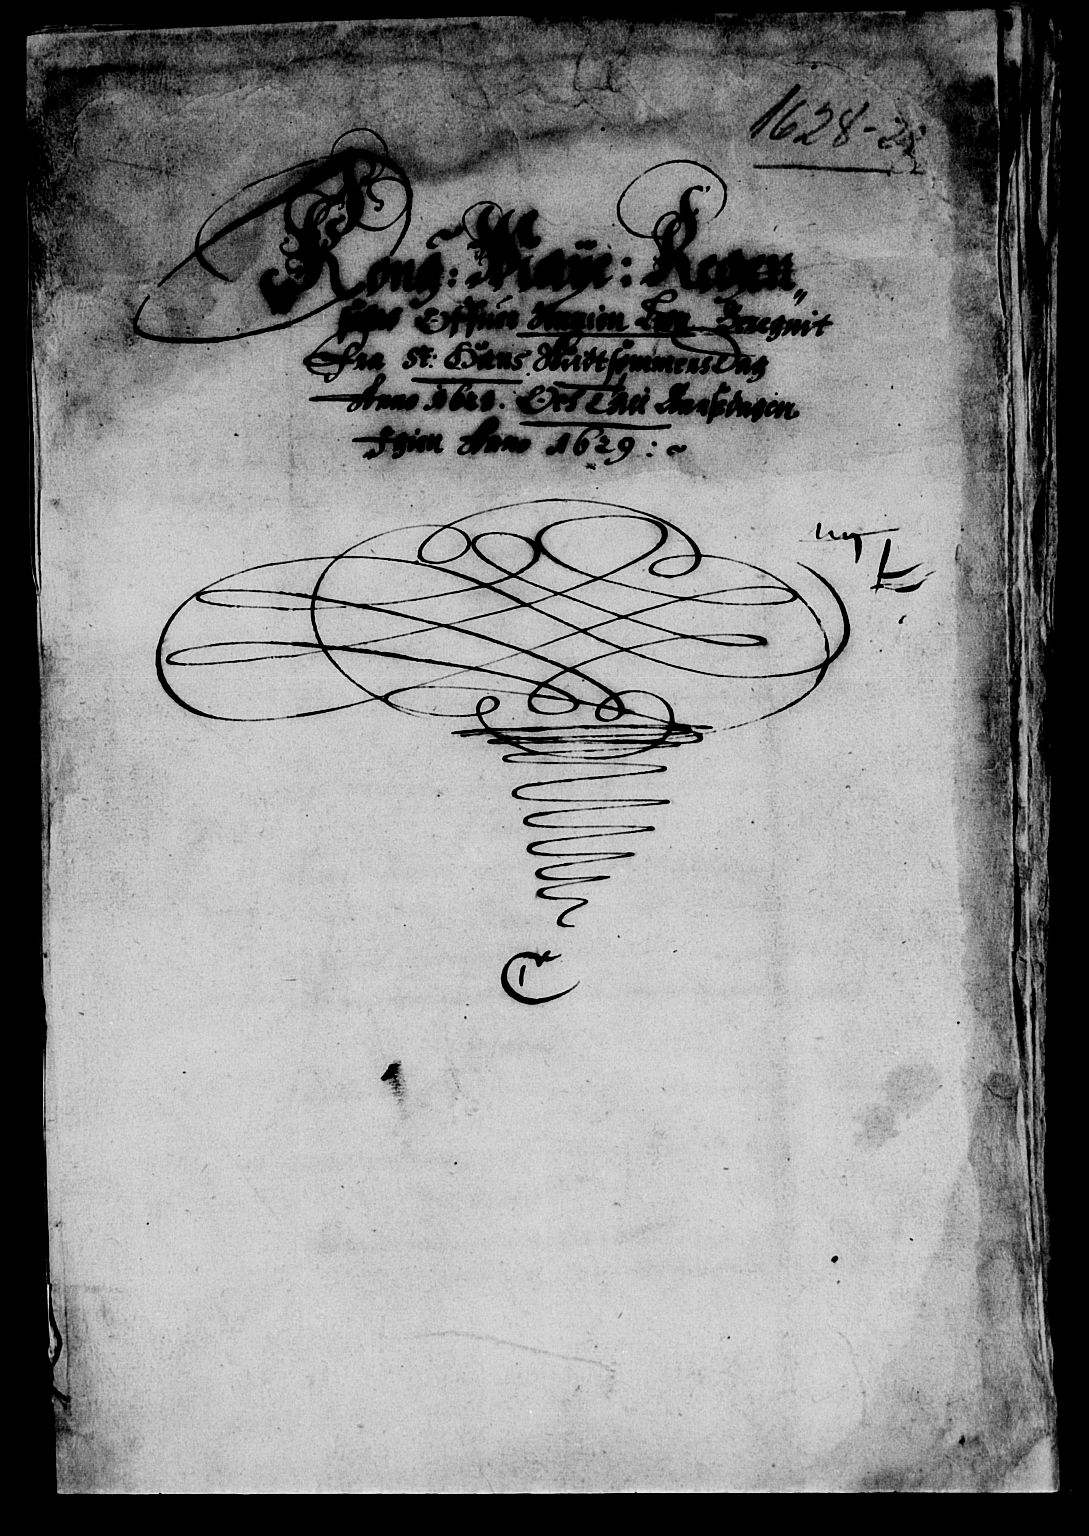 1628-29
Kong: Maÿe: Regen„
schab Offuer Lehn Beregnit
Fra St: Hans Midtsommers Dag
Anno 1628. Och Till Aarsdagen
Igien Anno 1629:~